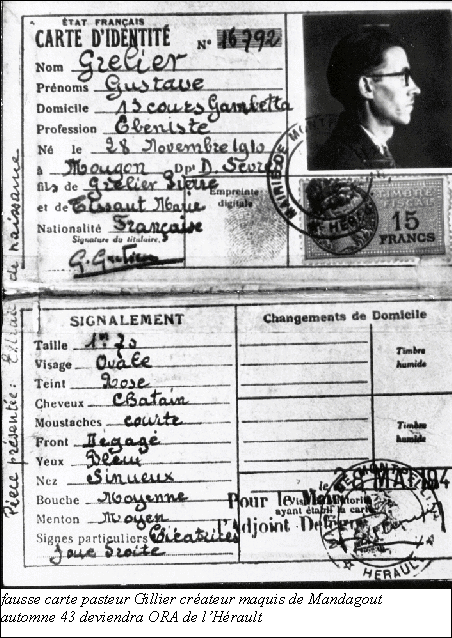 ÉTAT FRANÇAIS
CARTE D'IDENTITÉ N° 16792
Nom Grelier
Prénoms Gustave
Domicile 13 cours Gambetta
Profession Ébéniste
Né le 28 Novembre 1910
à Mougon Dpt D. Sèvre
fils de Grelier Pierre
et de Tissaut Marie
Nationalité Française
Empreinte
digitale
Signature du titulaire,
MAIRIE DE MONT
HÉRAULT
15
FRANCS
Pièce présentée: de naissance
SIGNALEMENT
Taille 1m70
Visage Ovale
Teint Rose
Cheveux Chatain
Moustaches courte
Front Dégagé
Yeux Bleu
Nez Sinueux
Bouche Moyenne
Menton Moyen
Signes particuliers Cicatrices
Joue Droite
Changements de Domicile
Timbre
humide
Timbre
humide
28 MAI 194
Pour le Maire
ayant établi la carte
l'Adjoint Délégué
HÉRAULT
fausse carte pasteur Gillier créateur maquis de Mandagout
automne 43 deviendra ORA de l'Hérault